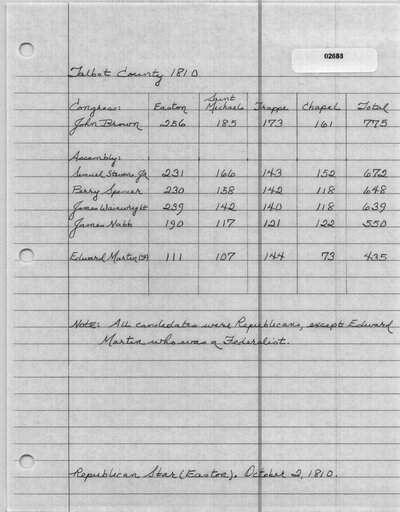 02688
Talbot County 1810
Congress: Easton Saint Michaels Trappe Chapel Total
John Brown 256 185 173 161 775
Assembly:
Samuel Stevens Jr 231 166 143 152 672
Perry Spencer 230 158 142 118 648
James Wainwright 239 142 140 118 639
James Nabb 190 117 121 122 550
Edward Martin (F) 111 107 144 73 435
Note: All candidates were Republicans, except Edward
Martin who was a Federalist.
Republican Star (Easton). October 2, 1810.